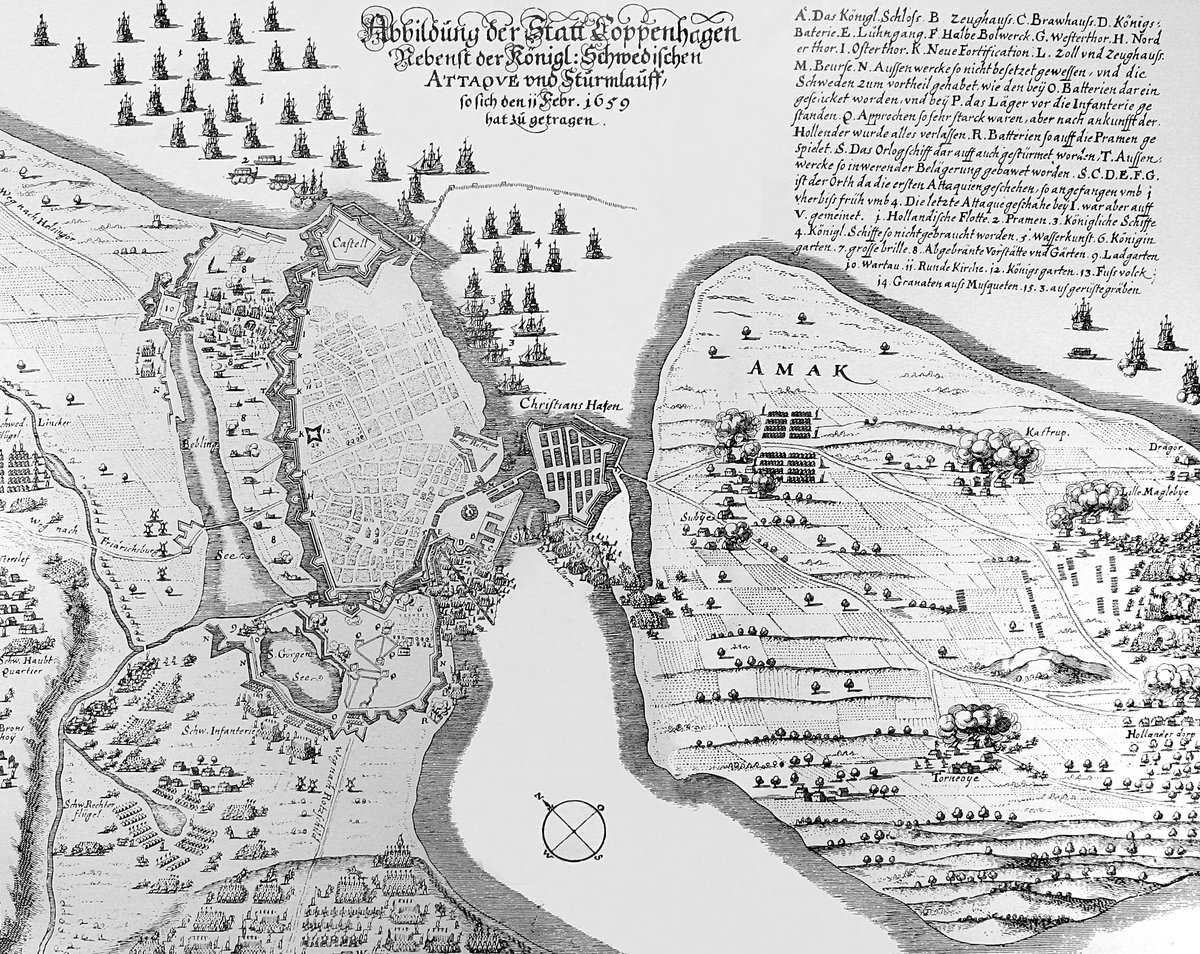 Abbildung der Statt Coppenhagen
Nebenst der Königl: Schwedischen
ATTAQVE vnd Sturmlauff,
so sich den 11 Febr. 1659
hat zu getragen.
A. Das Königl. Schloss. B Zeughauss. C. Brawhauss. D. Königs-
Baterie. E. Lühngang. F. Halbe Bolwerck. G. Westerthor. H. Nord
er thor. I. Osterthor. K. Neue Fortification. L. Zoll vnd Zeughauss.
M. Beurse. N. Aussenwercke so nicht besetzet gewessen, vnd die
Schweden zum vortheil gehabt, wie den beÿ O. Batterien darein
gesücket worden, vnd beÿ P. das Läger vor die Infanterie ge
standen. Q. Approchen so sehr starck waren, aber nach ankunfft der
Hollender wurde alles verlassen. R. Batterien so auff die Pramen ge
spielet. S. Das Orlogschiff dar auff auch gestürmet worden. T. Aussen-
wercke so in werender Belägerung gebawet worden. S. C. D. E. F. G.
ist der Orth da die ersten Attaquien geschehen, so angefangen vmb 1
vhr biss früh vmb 4. Die letzte Attaque geschahe bey I. war aber auff
V. gemeinet. 1. Hollandische Flotte. 2. Pramen. 3. Königliche Schiffe
4. Königl. Schiffe so nicht gebraucht worden. 5. Wasserkunst. 6. Königin
garten. 7. grosse brille. 8. Abgebrante Vorstätte vnd Gärten. 9. Ladgarten
10. Wartau. 11. Runde Kirche. 12. Königs garten. 13. Fuss volck;
14. Granaten auss Musqueten. 15. 3. aus gerüste gräben
Weg nach Helsinger
Castell
AMAK
Christians Hafen
Kastrup.
Dragör
Lille Maglebye
Schwed. Lincker
flügel.
Pebling
W. nach
Friderichsburg
See
Subye
S. Görgens
See
Schw. Haubt
Quartier
Brons
hoy
Schw. Infanterie
Schw. Rechter
flügel
Hollander dorp
Torneoye
N
O
S
W